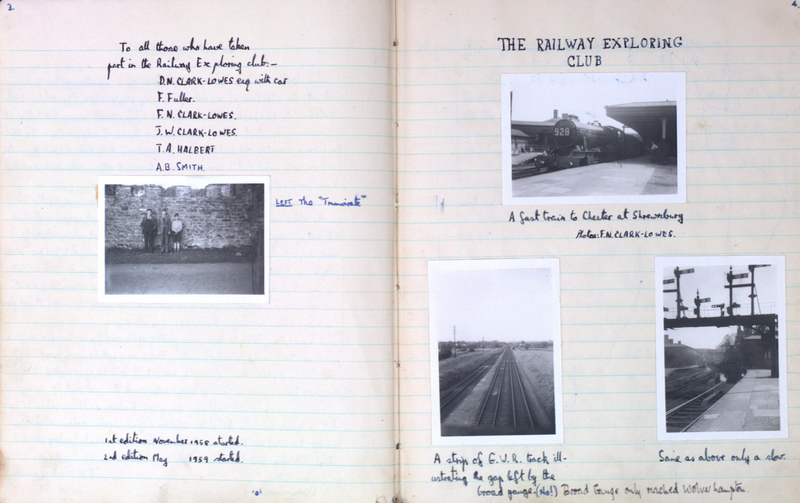 3.
To all those who have taken
part in the Railway Exploring club:-
D.N. CLARK-LOWES esq with car
F. Fuller.
F. N. CLARK-LOWES.
J. W. CLARK-LOWES.
T. A. HALBERT
A.B. SMITH.
LEFT The "Triumvirate"
1st edition November 1958 started.
2nd edition May 1959 started.
4.
THE RAILWAY EXPLORING
CLUB
928
A fast train to Chester at Shrewsbury
Photos: F.N. CLARK-LOWES.
A strip of G.W.R. track ill-
ustrating the gap left by the
broad gauge. (No!) Broad Gauge only reached Wolverhampton.
Same as above only a slow.